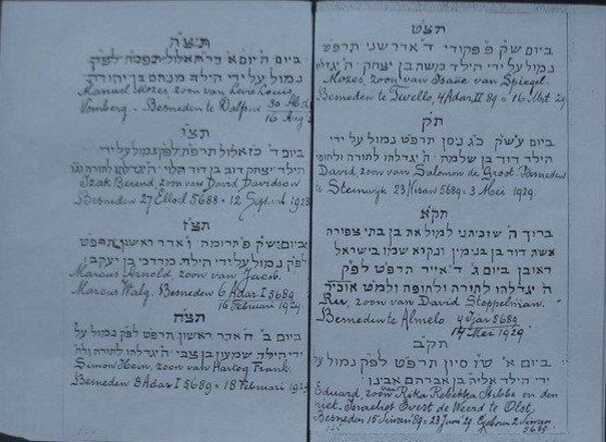 תצ״ה
ביום ה׳ יום א׳ דר״ח אלול תפר״ח לפ״ק
נמול על ידי הילד מנחם בן יהודה
Manuel Mozes, zoon van Levie Louis
Vomberg - Besneden te Dalfsen 30 Ab
16 Aug
תצ״ו
ביום ד׳ כ״ז אלול תרפ״ח לפ״ק נמול על ידי
הילד יצחק דוב בן דוד הלוי ה׳ יגדלהו לתורה
Izak Berend, zoon van David Davidson
Besneden 27 Elloel 5688 = 12 Sept 1928
תצ״ז
ביום ש״ק פ׳ תרומה ו׳ אדר ראשון תרפ״ט
לפ״ק נמול על ידי הילד מרדכי בן יעקב
Marcus Arnold zoon van Jacob
Marcus Walg. Besneden 6 Adar I 5689
16 Februari 1929
תצ״ח
ביום ב׳ ח׳ אדר ראשון תרפ״ט לפ״ק נמול על
ידי הילד שמעון בן צבי ה׳ יגדלהו לתורה
Simon Heim, zoon van Hartog Frank.
Besneden 8 Adar I 5689 = 18 Februari 1929
תצ״ט
ביום ש״ק פ׳ פקודי ד׳ אדר שני תרפ״ט
נמול על ידי הילד משה בן יצחק ה׳
Mozes, zoon van Isaäc van Spiegel.
Besneden te Twello, 4 Adar II 89 = 16 Mrt 29
ת״ק
ביום עש״ק כ״ג ניסן תרפ״ט נמול על ידי
הילד דוד בן שלמה ה׳ יגדלהו לתורה ולחופה
David, zoon van Salomon de Groot. Besneden
te Steenwijk 23 Nisan 5689 = 3 Mei 1929.
תק״א
בריך ה׳ שזכיתני למול את בן בתי צפורה
אשת דוד בן בנימין ונקרא שמו בישראל
ראובן ביום ג׳ ד׳ אייר תרפ״ט לפ״ק
ה׳ יגדלהו לתורה ולחופה ולמ״ט
zoon van David Stoppelman.
Besneden te Almelo 4 Ijar 5689
14 Mei 1929
תק״ב
ביום א׳ ט״ו סיון תרפ״ט לפ״ק נמול על
ידי הילד אליה בן אברהם אבינו
Eduard, zoon van Rika Rebekka en den
niet-Israeliet Evert de Weerd te Olst,
Besneden 15 Siwan 89 = 23 Juni 29 Geboren 2 Siwan
5689